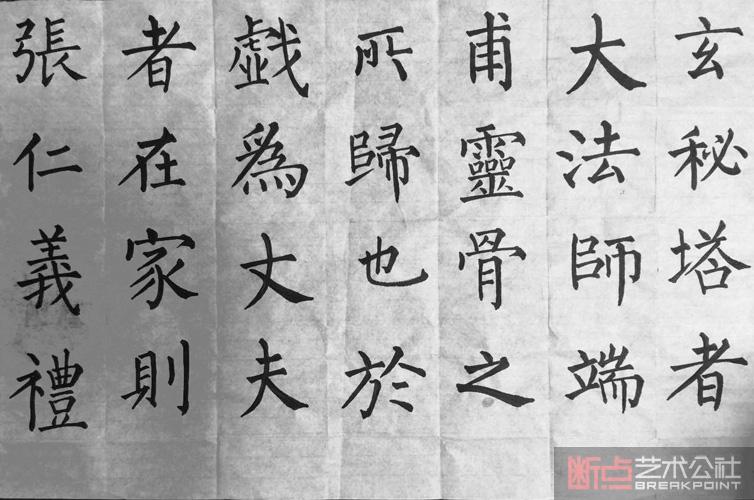 玄秘塔者
大法師端
甫靈骨之
所歸也於
戱為丈夫
者在家則
張仁義禮
断点艺术公社
BREAKPOINT